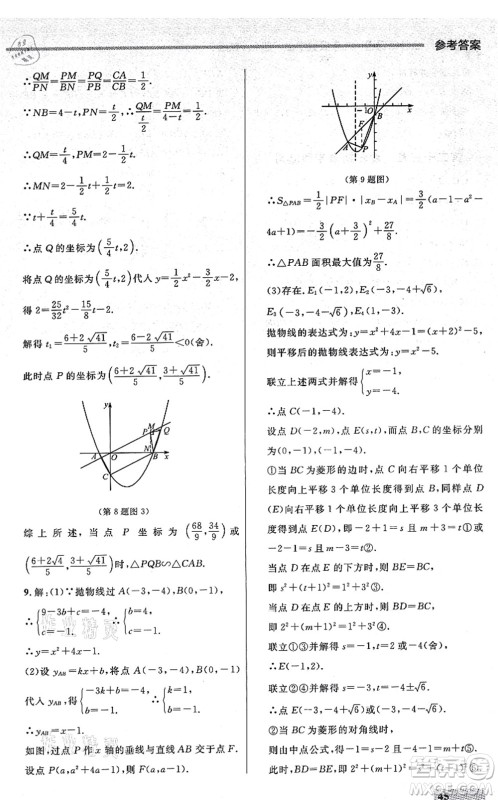 参考答案
∴QM/PN=PM/PB=PN/NB=CA/CB=1/2.
∵NB=4-t,PN=t/2,∴QM/(t/2)=PM/(4-t)=1/2.
∴QM=t/4,PM=(4-t)/2.
∴MN=2-t/2+t/2=2.
∵t+t/4=5/4 t.
∴点Q的坐标为(5/4 t,2).
将点Q的坐标为(5/4 t,2)代入y=x²/2-3/2 x-2.
得2=25/32 t²-15/8 t-2.
解得t₁=(6+2√41)/5,t₂=(6-2√41)/5<0(舍).
此时点P的坐标为((6+2√41)/5,(3+√41)/5).
y
P
Q
M
N
A
O
B
x
C
(第8题图3)
综上所述,当点P坐标为(68/9,34/9)或
((6+2√4)/5,(3+√41)/5)时,△PQB∽△CAB.
9.解:(1)∵抛物线过A(-3,-4),B(0,-1),
∴{9-3b+c=-4, c=-1. ∴{b=4, c=-1.
∴y=x²+4x-1.
(2)设y_AB=kx+b,将点A(-3,-4),B(0,-1)
代入y_AB,得{-3k+b=-4, b=-1. ∴{k=1, b=-1.
∴y_AB=x-1.
如图,过点P作x轴的垂线与直线AB交于点F.
设点P(a,a²+4a-1),则点F(a,a-1).
y
-1
O
x
B
F
A
P
(第9题图)
∴S△PAB=1/2|PF|·|x_B-x_A|=3/2(a-1-a²-
4a+1)=-3/2(a+3/2)²+27/8.
∴△PAB面积最大值为27/8.
(3)存在.E₁(-1,2),E₂(-3,-4+√6),
E₃(-3,-4-√6),E₄(-1,-3).
抛物线的表达式为:y=x²+4x-1=(x+2)²-5,
则平移后的抛物线表达式为:y=x²-5.
联立上述两式并解得{x=-1, y=-4.
∴点C(-1,-4).
设点D(-2,m),点E(s,t),而点B,C的坐标分别
为(0,-1),(-1,-4).
①当BC为菱形的边时,点C向右平移1个单位
长度向上平移3个单位长度得到B,同样点D
(E)向右平移1个单位长度向上平移3个单位长
度得到E(D),即-2+1=s且m+3=t①或
-2-1=s且m-3=t②.
当点D在点E的下方时,则BE=BC,
即s²+(t+1)²=1²+3²③.
当点D在点E的上方时,则BD=BC,
即2²+(m+1)²=1²+3²④.
联立①③并解得s=-1,t=2或-4(舍).
∴点E(-1,2).
联立②④并解得s=-3,t=-4±√6.
∴点E(-3,-4+√6)或(-3,-4-√6).
②当BC为菱形的对角线时,
则由中点公式,得-1=s-2且
45